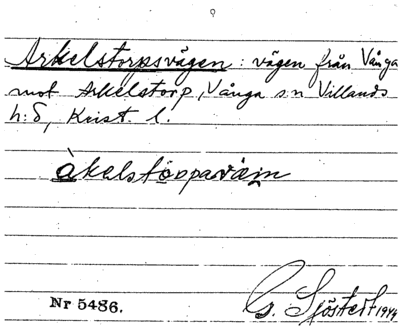 Arkelstorpsvägen : vägen från Vånga
mot Arkelstorp, Vånga sn Villands
h:d, Krist. l.
àkelstòrpavä̀jn
G. Sjöstedt 1944
Nr 5486.